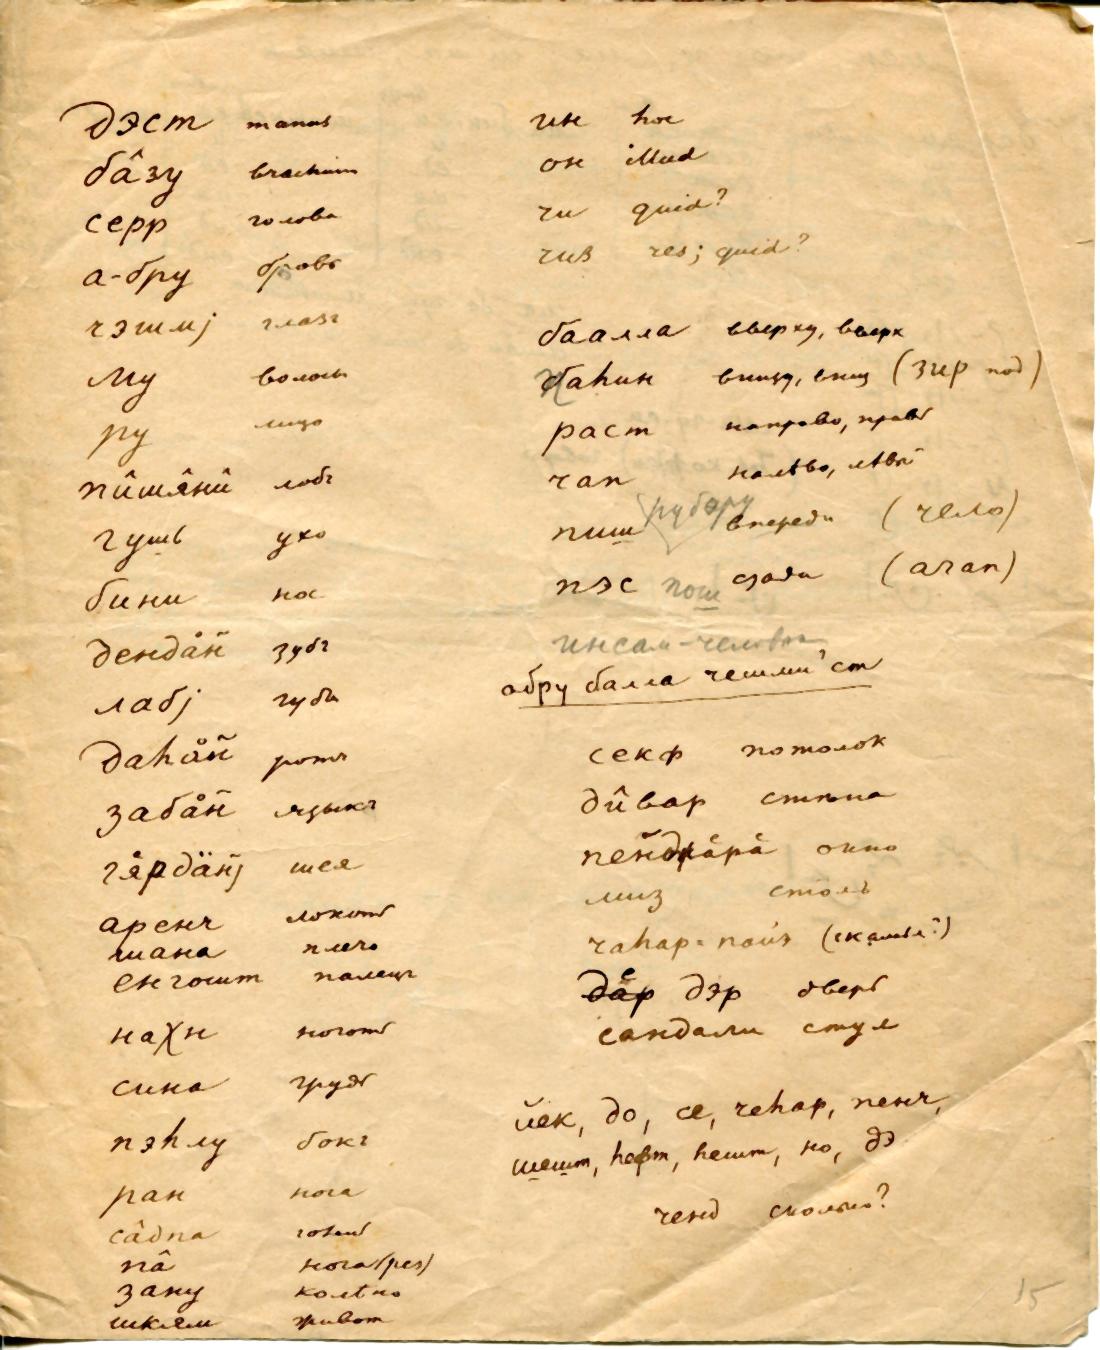 дэст manus
бâзу brachium
серр голова
а-бру бровь
чэшмј глазъ
му волосы
ру лицо
пûшâнû лобъ
гушь ухо
бини нос
дендåн̃ зубъ
лабј губы
даhåн̃ ротъ
забåн̃ языкъ
гåрдӓн̃ј шея
аренч локоть
шана плечо
енгошт палецъ
нахн ноготь
сина грудь
пэhлу бокъ
ран нога
сâдпа голень
пâ нога (pes)
зану колѣно
шкям живот
ин hoc
он illud
чи quid?
чиз res; quid?
баалла вверху, вверх
паhин внизу, вниз (зир под)
раст направо, правъ
чап налѣво, лѣвый
пиш рубэру впереди (чело)
пэс пош сзади (ахап)
инсан - человѣк
обру балла чешми'ст
секф потолок
дûвар стѣна
пен̃дҗåрå окно
миз столъ
чаhар-пайэ (скамья?)
дåр дэр дверь
сандали стул
йек, до, се, чеhар, пенч,
шешт, hафт, hешт, но, дэ
ченд сколько?
15